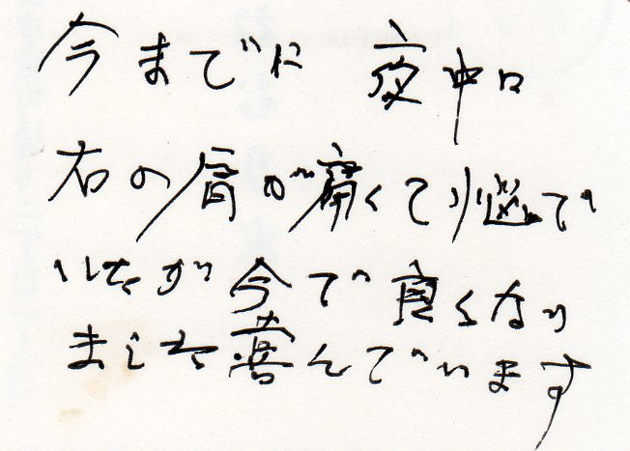 今までに 夜中に
右の肩が痛くて悩んで
いたが今で良くなり
ました喜んでいます